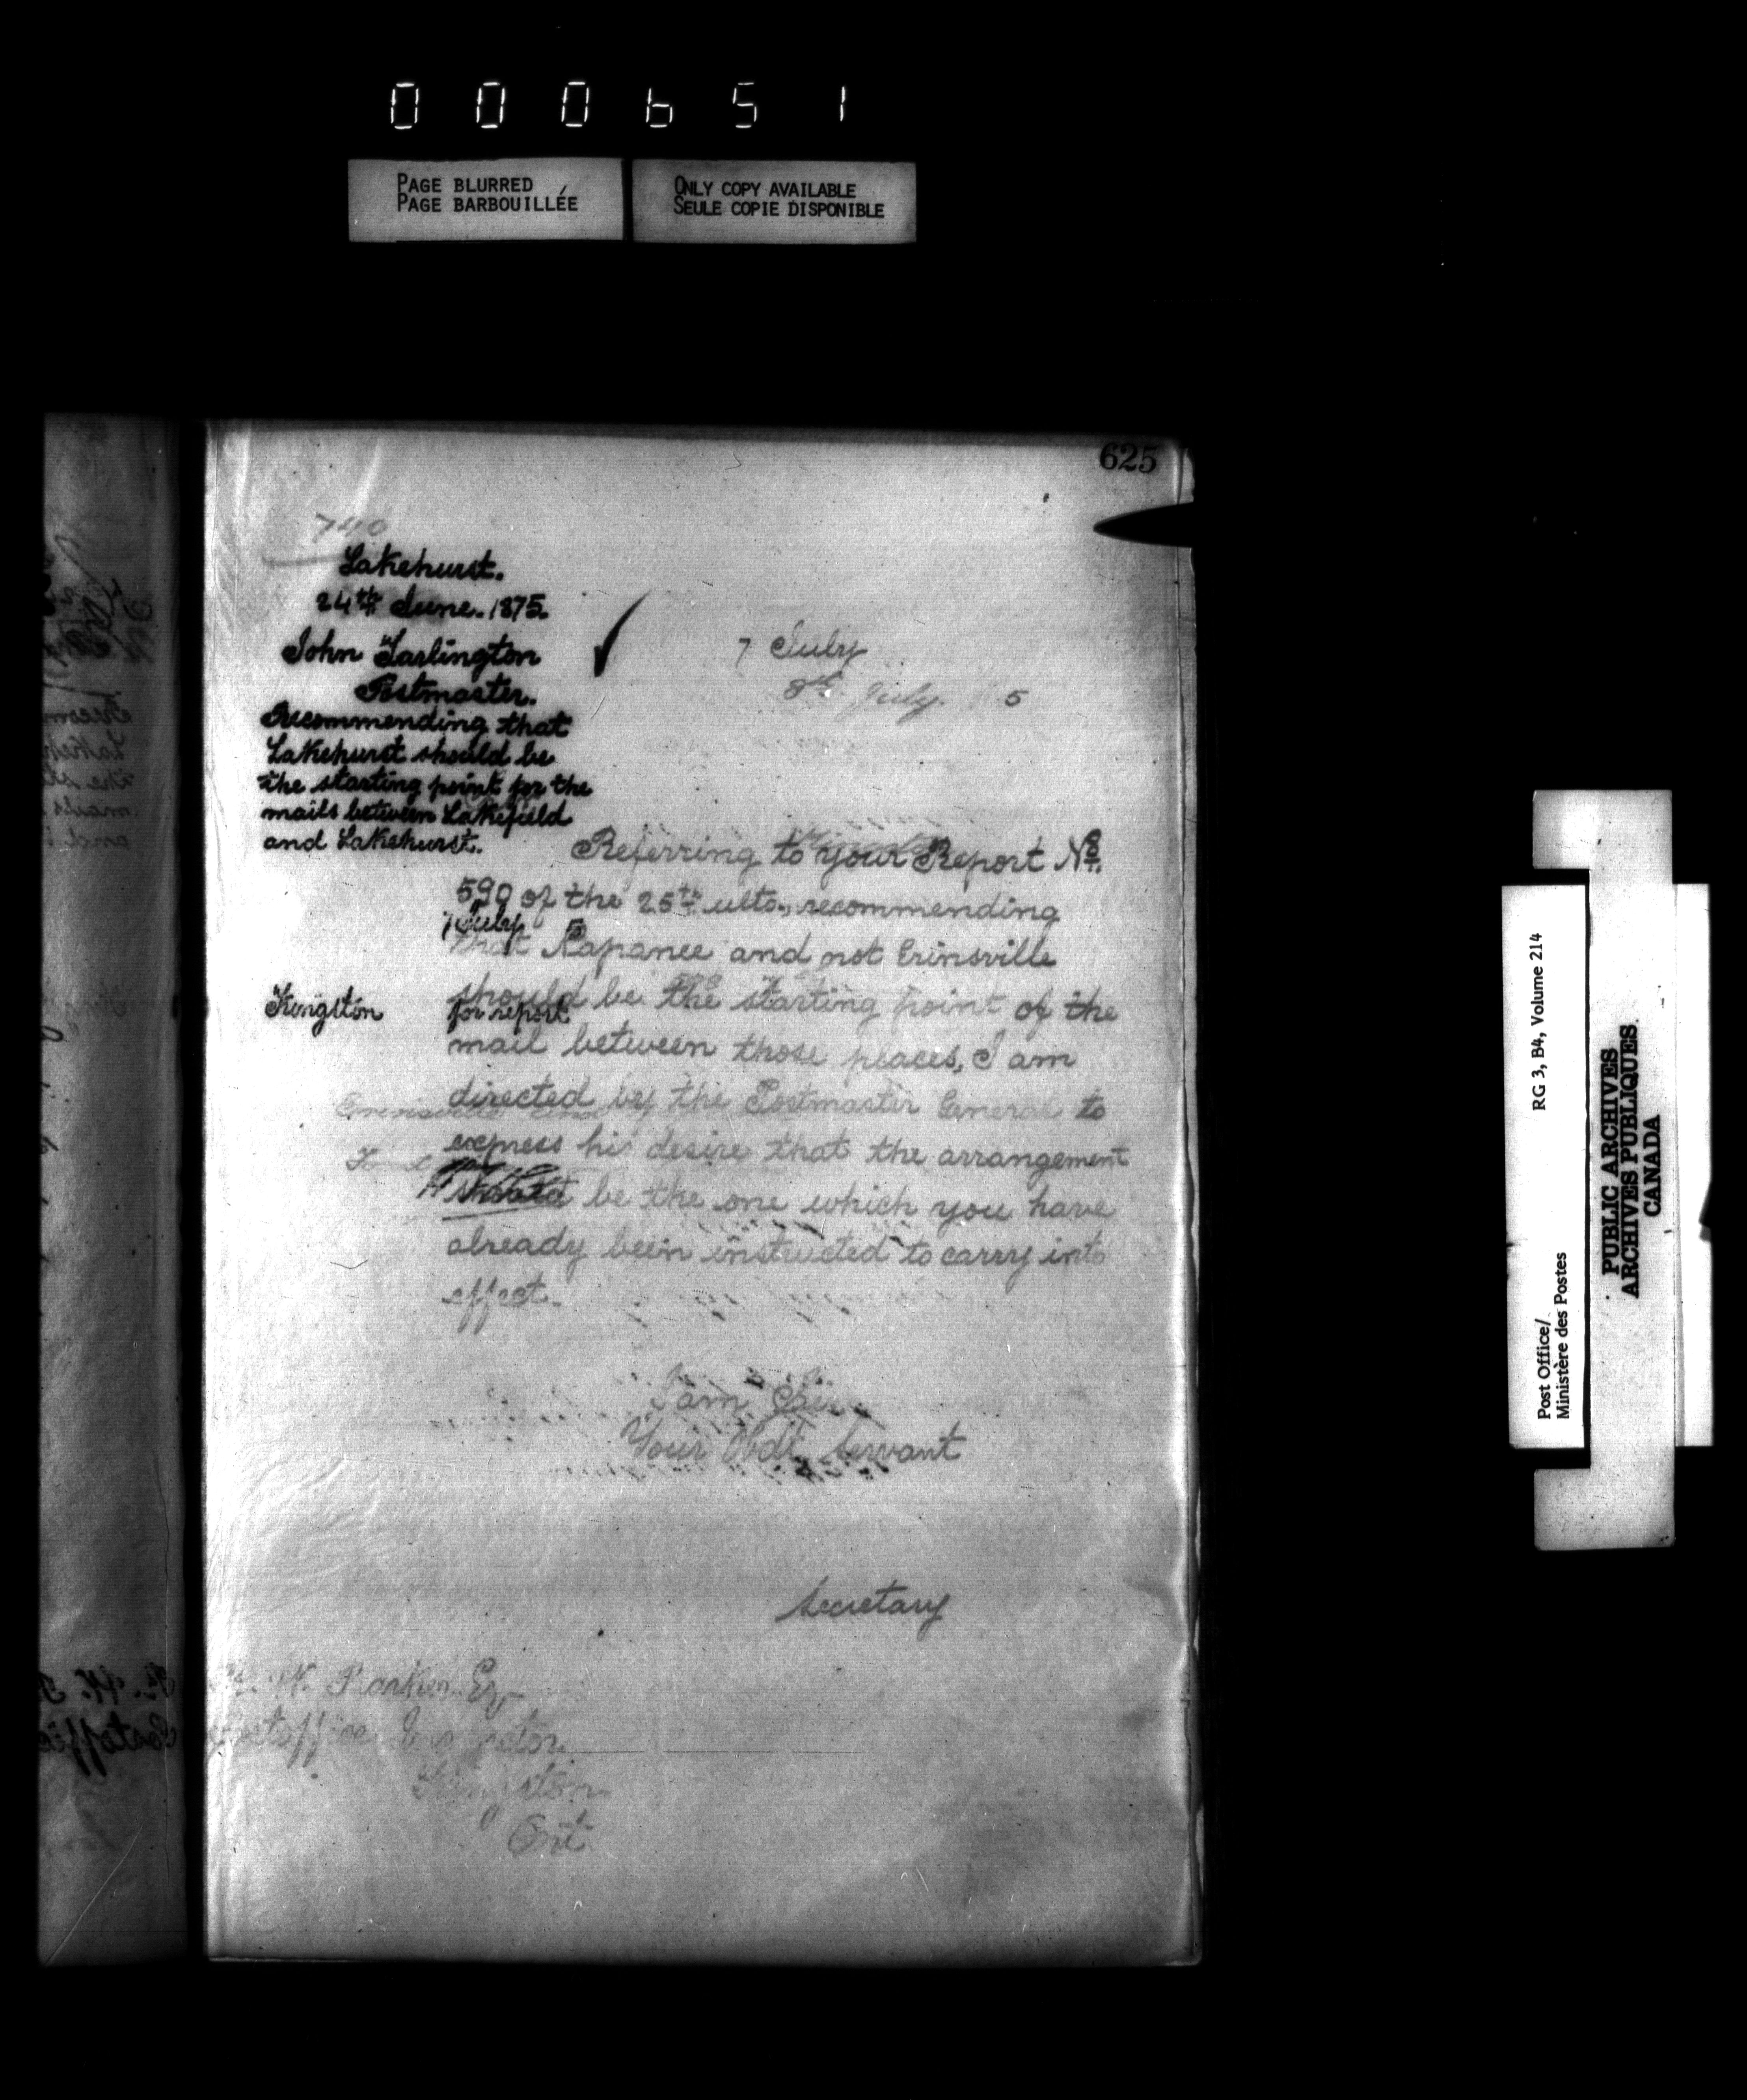 000651
PAGE BLURRED
PAGE BARBOUILLÉE
ONLY COPY AVAILABLE
SEULE COPIE DISPONIBLE
625
740
Lakehurst.
24th June. 1875.
John Tarlington
Postmaster.
Recommending that
Lakehurst should be
the starting point for the
mails between Lakefield
and Lakehurst.
7 July
8th July. 5
Referring to your Report No.
590 of the 25th ulto., recommending
7 July 5
that Napanee and not Erinsville
should be the starting point of the
Kingston
for report
mail between those places, I am
directed by the Postmaster General to
express his desire that the arrangement
should be the one which you have
already been instructed to carry into
effect.
I am Sir
Your Obdt. Servant
Secretary
W. Barker Esq
Postoffice Inspector
Kingston
Ont
RG 3, B4, Volume 214
Post Office/
Ministère des Postes
PUBLIC ARCHIVES
ARCHIVES PUBLIQUES
CANADA